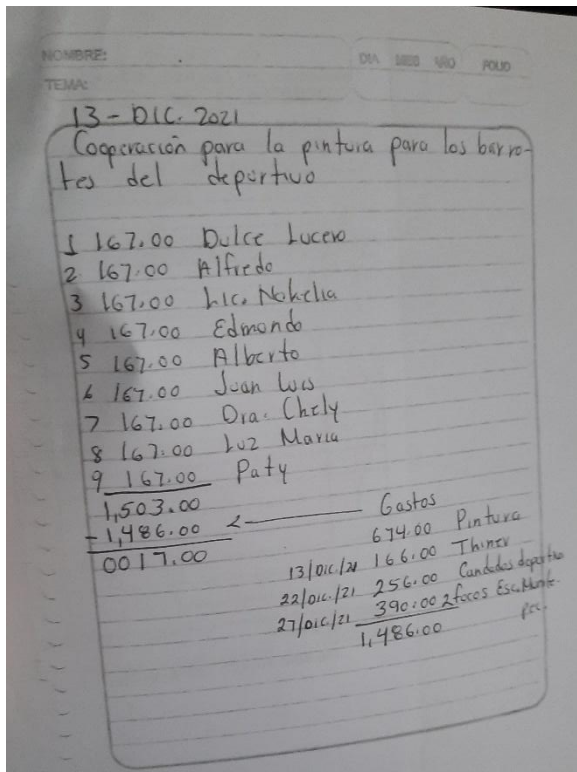 NOMBRE:
DIA MES AÑO FOLIO
TEMA:
13-DIC. 2021
Cooperación para la pintura para los barro-
tes del deportivo
1 167.00 Dulce Lucero
2 167.00 Alfredo
3 167.00 Lic. Nohelia
4 167.00 Edmondo
5 167.00 Alberto
6 167.00 Juan Luis
7 167.00 Dra. Chely
8 167.00 Luz Maria
9 167.00 Paty
1,503.00
-1,486.00
0017.00
Gastos
674.00 Pintura
13/DIC/21 166.00 Thiner
22/DIC./21 256.00 Candados deportivo
27/DIC./21 390.00 2 focos
1,486.00